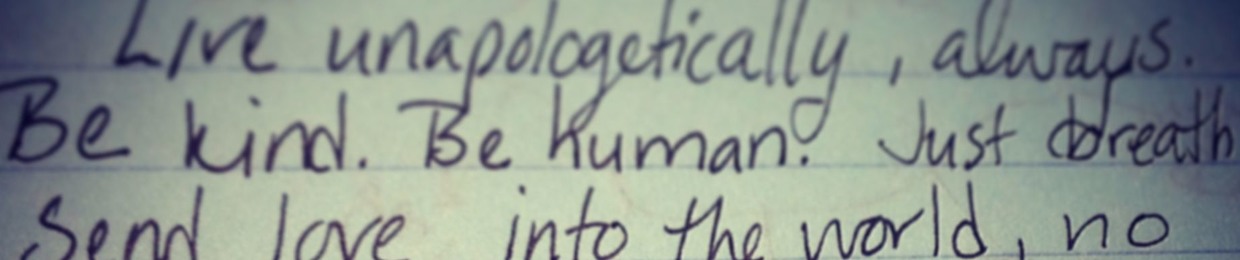 Live unapologetically, always.
Be kind. Be human. Just breath
Send love into the world, no